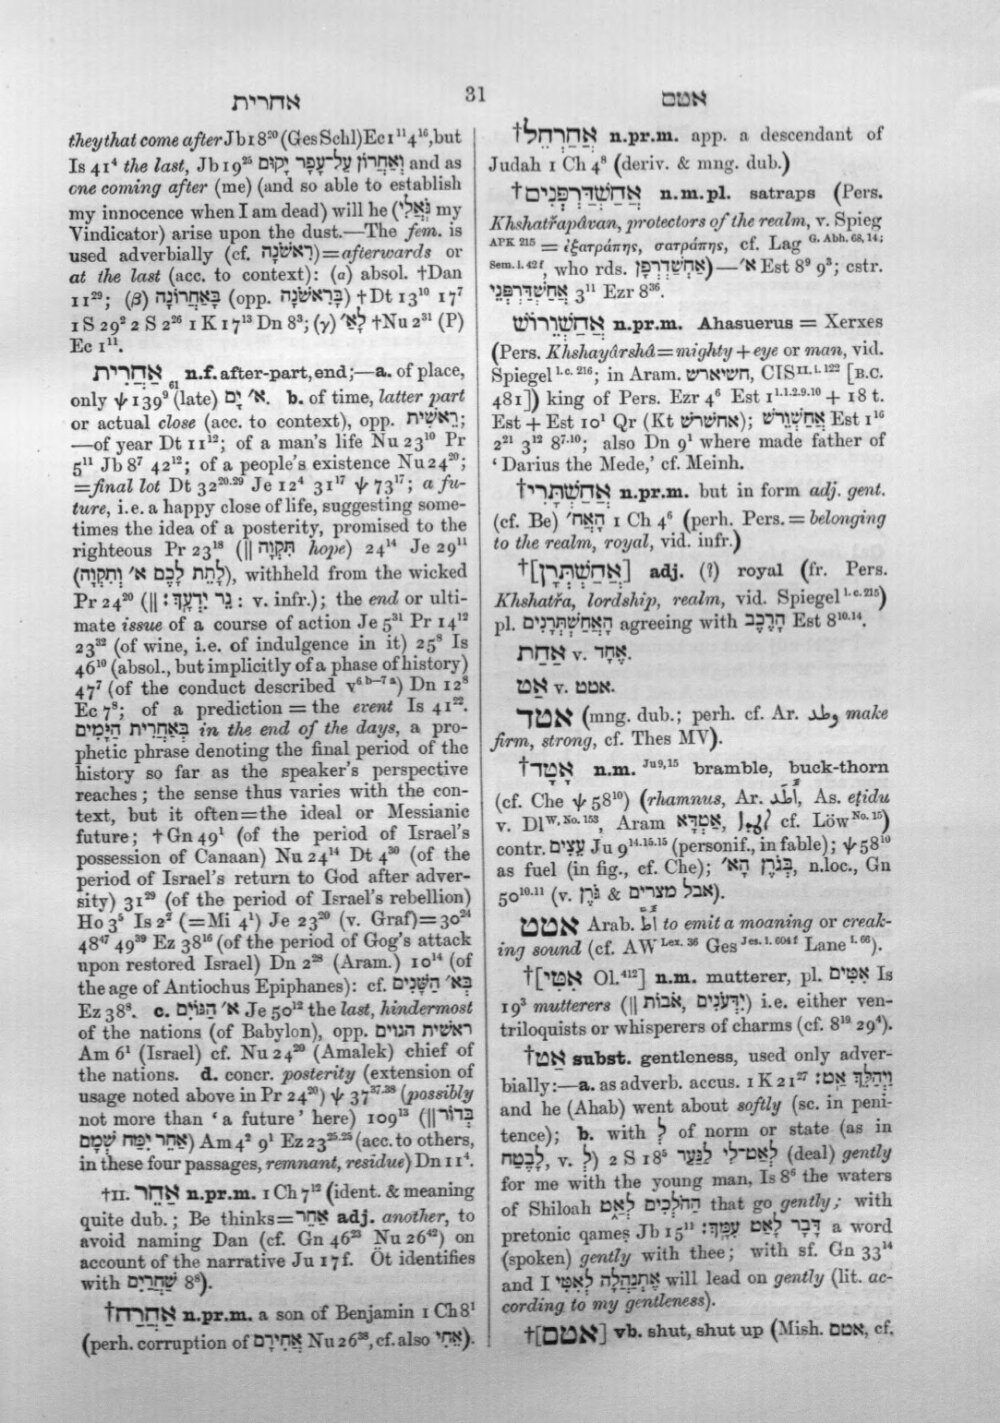 אחרית
31
אטם
they that come after Jb 18²⁰ (GesSchl) Ec 1¹¹ 4¹⁶, but
Is 41⁴ the last, Jb 19²⁵ וְאַחֲרוֹן עַל־עָפָר יָקוּם and as
one coming after (me) (and so able to establish
my innocence when I am dead) will he (גֹּאֲלִי my
Vindicator) arise upon the dust.—The fem. is
used adverbially (cf. רִאשֹׁנָה)=afterwards or
at the last (acc. to context): (α) absol. †Dan
11²⁹; (β) בָּאַחֲרוֹנָה (opp. בָּרִאשֹׁנָה) †Dt 13¹⁰ 17⁷
1 S 29² 2 S 2²⁶ 1 K 17¹³ Dn 8³; (γ) לָא׳ †Nu 2³¹ (P)
Ec 1¹¹.
אַחֲרִית 61 n.f. after-part, end;—a. of place,
only ψ 139⁹ (late) א׳ יָם. b. of time, latter part
or actual close (acc. to context), opp. רֵאשִׁית;
—of year Dt 11¹²; of a man's life Nu 23¹⁰ Pr
5¹¹ Jb 8⁷ 42¹²; of a people's existence Nu 24²⁰;
=final lot Dt 32²⁰·²⁹ Je 12⁴ 31¹⁷ ψ 73¹⁷; a fu-
ture, i.e. a happy close of life, suggesting some-
times the idea of a posterity, promised to the
righteous Pr 23¹⁸ (|| תִּקְוָה hope) 24¹⁴ Je 29¹¹
(לָתֵת לָכֶם א׳ וְתִקְוָה), withheld from the wicked
Pr 24²⁰ (|| נֵר יִדְעָךְ: v. infr.); the end or ulti-
mate issue of a course of action Je 5³¹ Pr 14¹²
23³² (of wine, i.e. of indulgence in it) 25⁸ Is
46¹⁰ (absol., but implicitly of a phase of history)
47⁷ (of the conduct described v⁶ᵇ⁻⁷ᵃ) Dn 12⁸
Ec 7⁸; of a prediction = the event Is 41²².
בְּאַחֲרִית הַיָּמִים in the end of the days, a pro-
phetic phrase denoting the final period of the
history so far as the speaker's perspective
reaches; the sense thus varies with the con-
text, but it often=the ideal or Messianic
future; †Gn 49¹ (of the period of Israel's
possession of Canaan) Nu 24¹⁴ Dt 4³⁰ (of the
period of Israel's return to God after adver-
sity) 31²⁹ (of the period of Israel's rebellion)
Ho 3⁵ Is 2² (=Mi 4¹) Je 23²⁰ (v. Graf)=30²⁴
48⁴⁷ 49³⁹ Ez 38¹⁶ (of the period of Gog's attack
upon restored Israel) Dn 2²⁸ (Aram.) 10¹⁴ (of
the age of Antiochus Epiphanes): cf. בְּא׳ הַשָּׁנִים
Ez 38⁸. c. א׳ הַגּוֹיִם Je 50¹² the last, hindermost
of the nations (of Babylon), opp. ראשית הגוים
Am 6¹ (Israel) cf. Nu 24²⁰ (Amalek) chief of
the nations. d. concr. posterity (extension of
usage noted above in Pr 24²⁰) ψ 37³⁷·³⁸ (possibly
not more than ‘a future’ here) 109¹³ (|| בְּדוֹר
אַחֵר יִמַּח שְׁמָם) Am 4² 9¹ Ez 23²⁵·²⁵ (acc. to others,
in these four passages, remnant, residue) Dn 11⁴.
†II. אַחֵר n.pr.m. 1 Ch 7¹² (ident. & meaning
quite dub.; Be thinks=אַחֵר adj. another, to
avoid naming Dan (cf. Gn 46²³ Nu 26⁴²) on
account of the narrative Ju 17 f. Öt identifies
with שַׁחֲרַיִם 8⁸).
†אַחְרַח n.pr.m. a son of Benjamin 1 Ch 8¹
(perh. corruption of אֲחִירָם Nu 26³⁸, cf. also אֵחִי).
†אֲחַרְחֵל n.pr.m. app. a descendant of
Judah 1 Ch 4⁸ (deriv. & mng. dub.)
†אֲחַשְׁדַּרְפְּנִים n.m.pl. satraps (Pers.
Khshatřapâvan, protectors of the realm, v. Spieg
APK 215 = ἐξατράπης, σατράπης, cf. Lag G. Abh. 68, 14;
Sem. i. 42 f, who rds. אֲחַשְׁדְרְפָּן)—א׳ Est 8⁹ 9³; cstr.
אֲחַשְׁדַּרְפְּנֵי 3¹¹ Ezr 8³⁶.
אֲחַשְׁוֵרוֹשׁ n.pr.m. Ahasuerus = Xerxes
(Pers. Khshayârshâ=mighty + eye or man, vid.
Spiegel l.c. 216; in Aram. חשיארש, CIS II. i. 122 [B.C.
481]) king of Pers. Ezr 4⁶ Est 1¹·¹·²·⁹·¹⁰ + 18 t.
Est + Est 10¹ Qr (Kt אחשרש); אֲחַשְׁוֵרשׁ Est 1¹⁶
2²¹ 3¹² 8⁷·¹⁰; also Dn 9¹ where made father of
‘Darius the Mede,’ cf. Meinh.
†אֲחַשְׁתָּרִי n.pr.m. but in form adj. gent.
(cf. Be) הָאֲח׳ 1 Ch 4⁶ (perh. Pers. = belonging
to the realm, royal, vid. infr.)
†[אֲחַשְׁתְּרָן] adj. (?) royal (fr. Pers.
Khshatřa, lordship, realm, vid. Spiegel l.c. 215)
pl. הָאֲחַשְׁתְּרָנִים agreeing with הָרֶכֶב Est 8¹⁰·¹⁴.
אַחַת v. אֶחָד.
אַט v. אטט.
אטד (mng. dub.; perh. cf. Ar. وطد make
firm, strong, cf. Thes MV).
†אָטָד n.m. Ju 9, 15 bramble, buck-thorn
(cf. Che ψ 58¹⁰) (rhamnus, Ar. أَطَد, As. eṭidu
v. Dl W, No. 153, Aram אַטְדָא, cf. Löw No. 15)
contr. עֵצִים Ju 9¹⁴·¹⁵·¹⁵ (personif., in fable); ψ 58¹⁰
as fuel (in fig., cf. Che); בְּגֹרֶן הָא׳, n.loc., Gn
50¹⁰·¹¹ (v. גֹּרֶן & אבל מצרים).
אטט Arab. أَطَّ to emit a moaning or creak-
ing sound (cf. AW Lex. 36 Ges Jes. i. 604 f Lane i. 66).
†[אִטִּי Ol. 412] n.m. mutterer, pl. אִטִּים Is
19³ mutterers (|| אֹבוֹת, יִדְּעֹנִים) i.e. either ven-
triloquists or whisperers of charms (cf. 8¹⁹ 29⁴).
†אַט subst. gentleness, used only adver-
bially:—a. as adverb. accus. 1 K 21²⁷ וַיְהַלֵּךְ אַט:
and he (Ahab) went about softly (sc. in peni-
tence); b. with לְ of norm or state (as in
לָבֶטַח, v. לְ) 2 S 18⁵ לְאַט־לִי לַנַּעַר (deal) gently
for me with the young man, Is 8⁶ the waters
of Shiloah הַהֹלְכִים לְאַט that go gently; with
pretonic qameṣ Jb 15¹¹ דָּבָר לָאַט עִמָּךְ: a word
(spoken) gently with thee; with sf. Gn 33¹⁴
and I אֶתְנָהֲלָה לְאִטִּי will lead on gently (lit. ac-
cording to my gentleness).
†[אטם] vb. shut, shut up (Mish. אטם, cf.